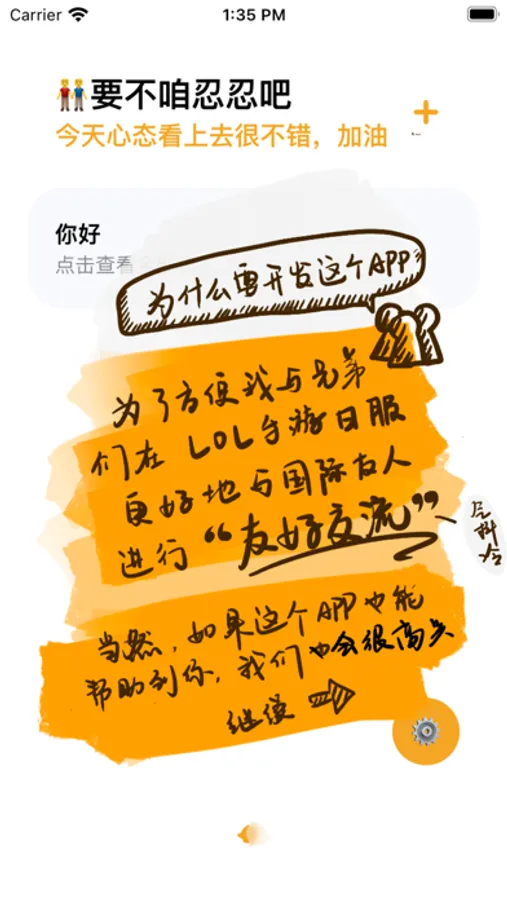 Carrier 1:35 PM
👬要不咱忍忍吧
今天心态看上去很不错，加油
你好
点击查看
为什么要开发这个APP
为了方便我与兄弟
们在 LOL手游日服
更好地与国际友人
进行“友好交流”
当然，如果这个APP也能
帮助到你，我们也会很高兴
继续